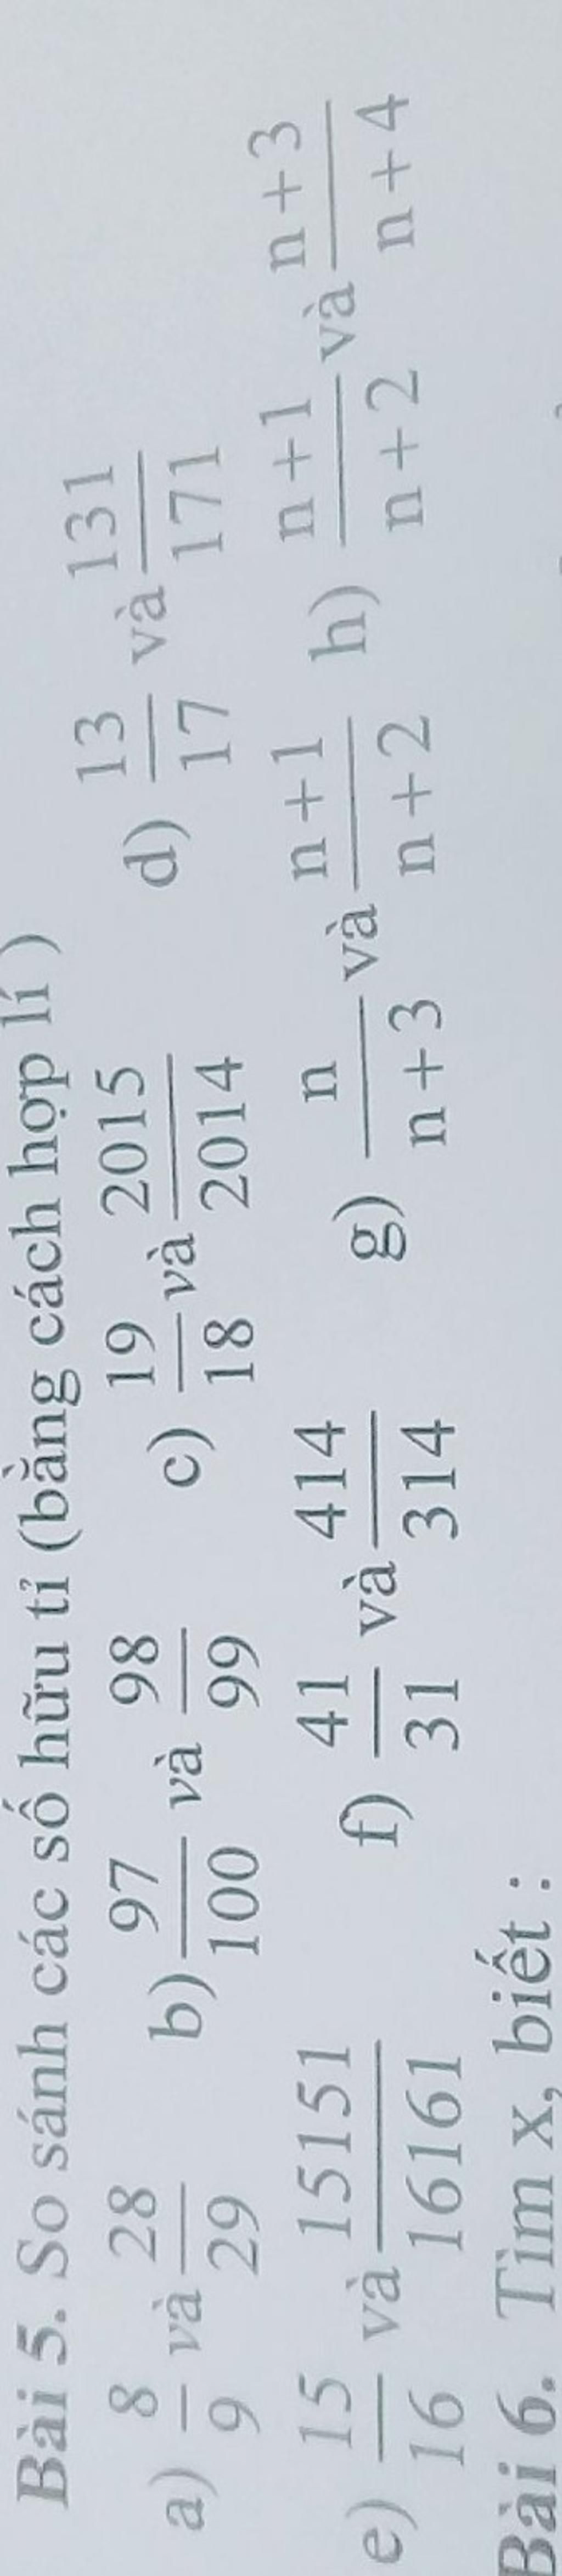 Bài 5. So sánh các số hữu tỉ (bằng cách hợp lí )
a) 8/9 và 28/29 b) 97/100 và 98/99 c) 19/18 và 2015/2014 d) 13/17 và 131/171
e) 15/16 và 15151/16161 f) 41/31 và 414/314 g) n/n + 3 và n + 1/n + 2 h) n + 1/n + 2 và n + 3/n + 4
Bài 6. Tìm x, biết :